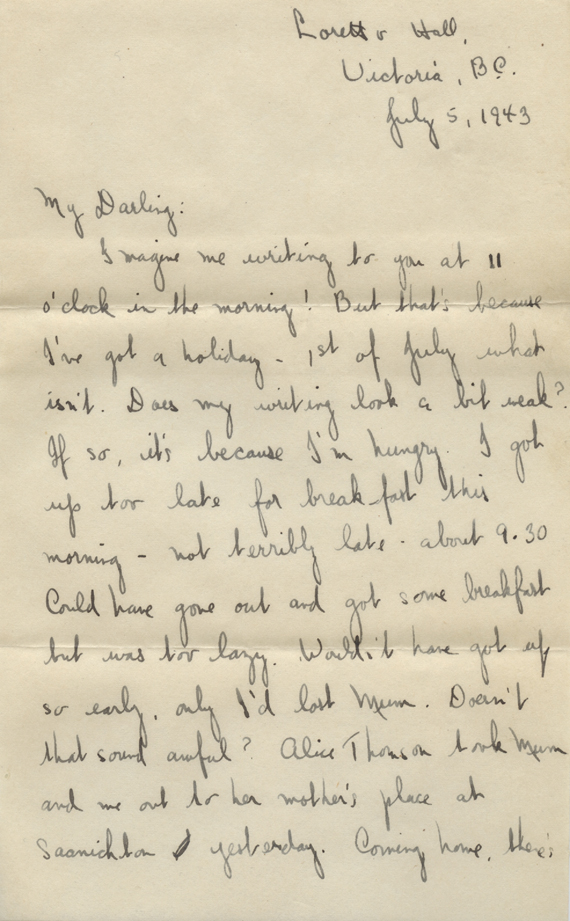 Loretto Hall,
Victoria, B.C.
July 5, 1943
My Darling:
Imagine me writing to you at 11
o'clock in the morning! But that's because
I've got a holiday - 1st of July what
isn't. Does my writing look a bit weak?
If so, it's because I'm hungry. I got
up too late for breakfast this
morning - not terribly late - about 9.30
Could have gone out and got some breakfast
but was too lazy. Wouldn't have got up
so early, only I'd lost Mum. Doesn't
that sound awful? Alice Thomson took Mum
and me out to her mother's place at
Saanichton yesterday. Coming home, there's